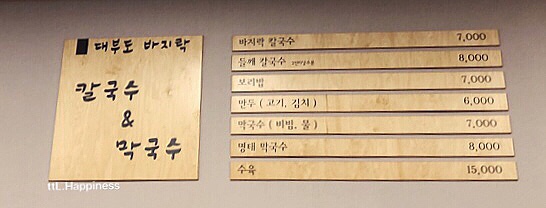 대부도 바지락
칼국수
&
막국수
바지락 칼국수 7,000
들깨 칼국수 8,000
보리밥 7,000
만두 ( 고기, 김치 ) 6,000
막국수 ( 비빔, 물 ) 7,000
명태 막국수 8,000
수육 15,000
ttL..Happiness